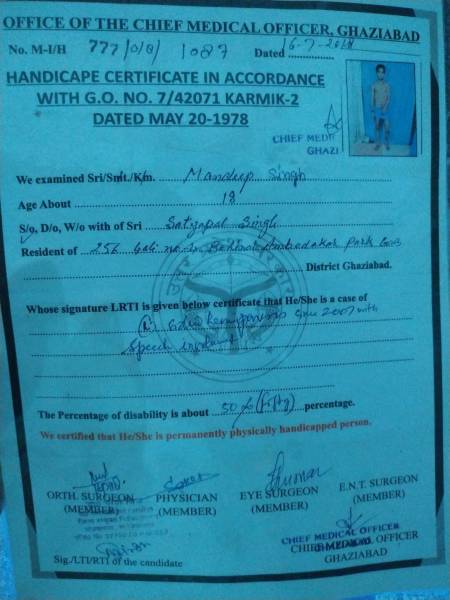 OFFICE OF THE CHIEF MEDICAL OFFICER, GHAZIABAD
No. M-I/H 777/ 1087 Dated
HANDICAPE CERTIFICATE IN ACCORDANCE
WITH G.O. NO. 7/42071 KARMIK-2
DATED MAY 20-1978
CHIEF MEDI
GHAZI
We examined Sri/Smt./Km. Mandeep Singh
Age About 18
S/o, D/o, W/o with of Sri Satyapal Singh
Resident of 256 Park
District Ghaziabad.
Whose signature LRTI is given below certificate that He/She is a case of
2007 with
Speech
The Percentage of disability is about 50% (fifty) percentage.
We certified that He/She is permanently physically handicapped person.
ORTH. SURGEON PHYSICIAN EYE SURGEON E.N.T. SURGEON
(MEMBER) (MEMBER) (MEMBER) (MEMBER)
CHIEF MEDICAL OFFICER
CHIEF MEDICAL OFFICER
GHAZIABAD
Sig./LTI/RTI of the candidate